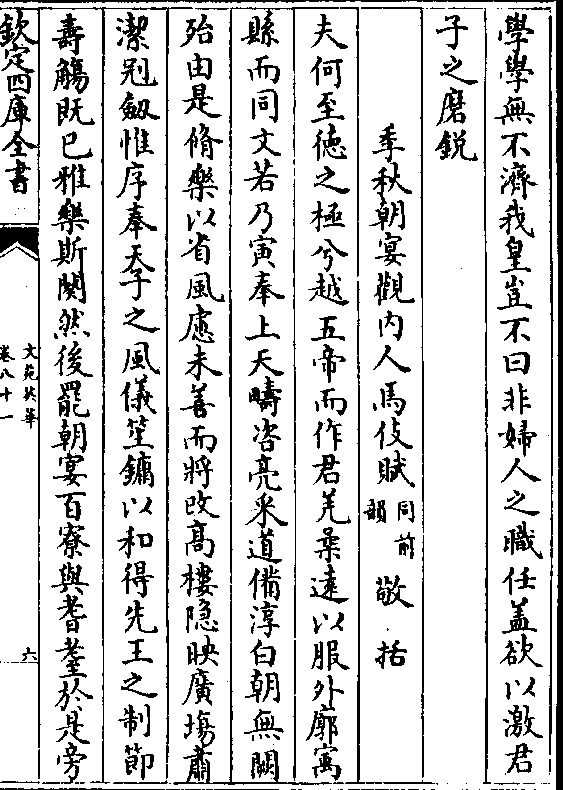 學學無不濟我皇豈不曰非婦人之職任盖欲以激君
子之磨鋭
季秋朝宴觀内人馬伎賦同前韻 敬括
夫何至徳之極兮越五帝而作君羌桑遠以服外廓寓
縣而同文若乃寅奉上天疇咨亮采道備淳白朝無闕
殆由是脩樂以省風慮未善而將改高樓隐映廣塲肅
潔剋劔惟序奉天子之風儀笙鏞以和得先王之制節
壽觴既巳雅樂斯闋然後罷朝宴百寮與耆耋於是旁
欽定四庫全書
文苑英華
卷八十一
六